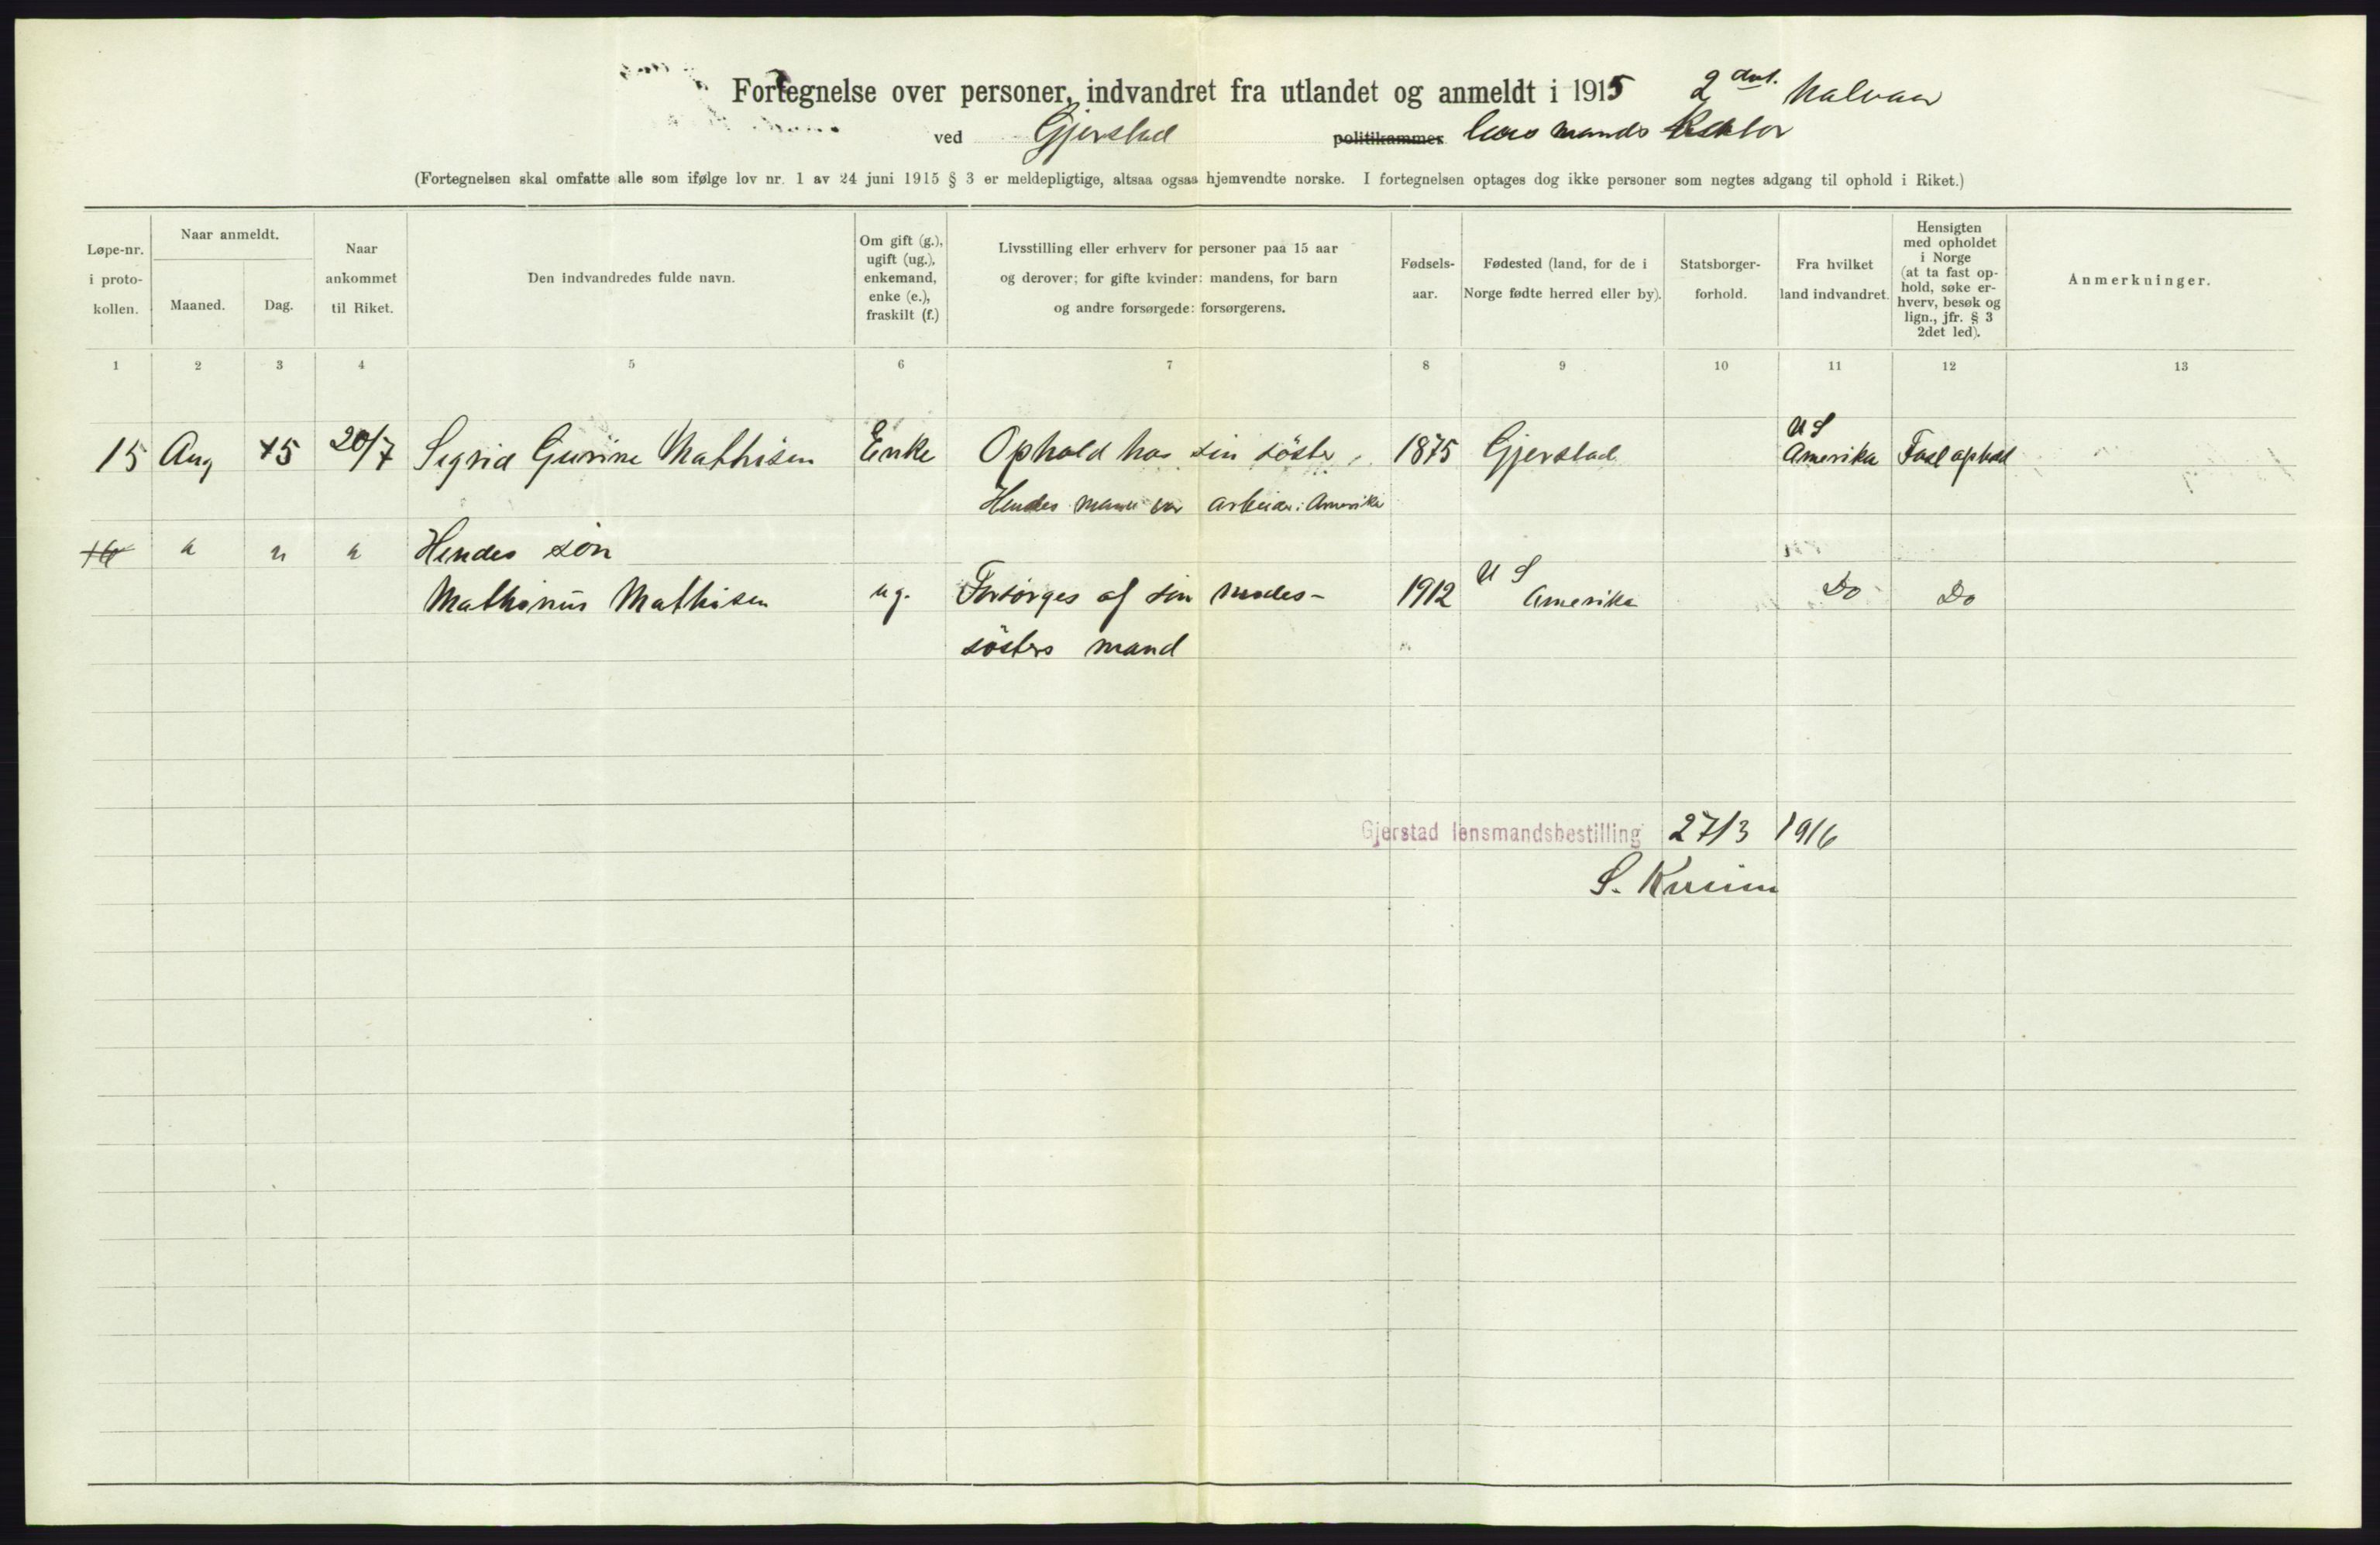 Fortegnelse over personer, indvandret fra utlandet og anmeldt i 1915 2 det. halvaar
ved Gjerstad politikammer
(Fortegnelsen skal omfatte alle som ifølge lov nr. 1 av 24 juni 1915 § 3 er meldepligtige, altsaa ogsaa hjemvendte norske. I fortegnelsen optages dog ikke personer som negtes adgang til ophold i Riket.)
Løpe-nr. i proto-kollen.
Naar anmeldt.
Maaned.
Dag.
Naar ankommet til Riket.
Den indvandredes fulde navn.
Om gift (g.), ugift (ug.), enkemand, enke (e.), fraskilt (f.)
Livsstilling eller erhverv for personer paa 15 aar
og derover; for gifte kvinder: mandens, for barn
og andre forsørgede: forsørgerens.
Fødsels-aar.
Fødested (land, for de i
Norge fødte herred eller by).
Statsborger-forhold.
Fra hvilket land indvandret.
Hensigten med opholdet i Norge (at ta fast op-hold, søke er-hverv, besøk og lign., jfr. § 3 2det led).
Anmerkninger.
1 2 3 4 5 6 7 8 9 10 11 12 13
15 Aug 15 20/7 Sigrid Gurine Mathisen Enke Ophold hos sin söster 1875 Gjerstad U S Amerika Fast ophold
Hendes mann var arbeider i Amerika
16 " " " Hendes sön
Mathinus Mathisen ug. Forsörges af sin moder- 1912 U S Amerika Do Do
sösters mand
Gjerstad lensmandsbestilling 27/3 1916